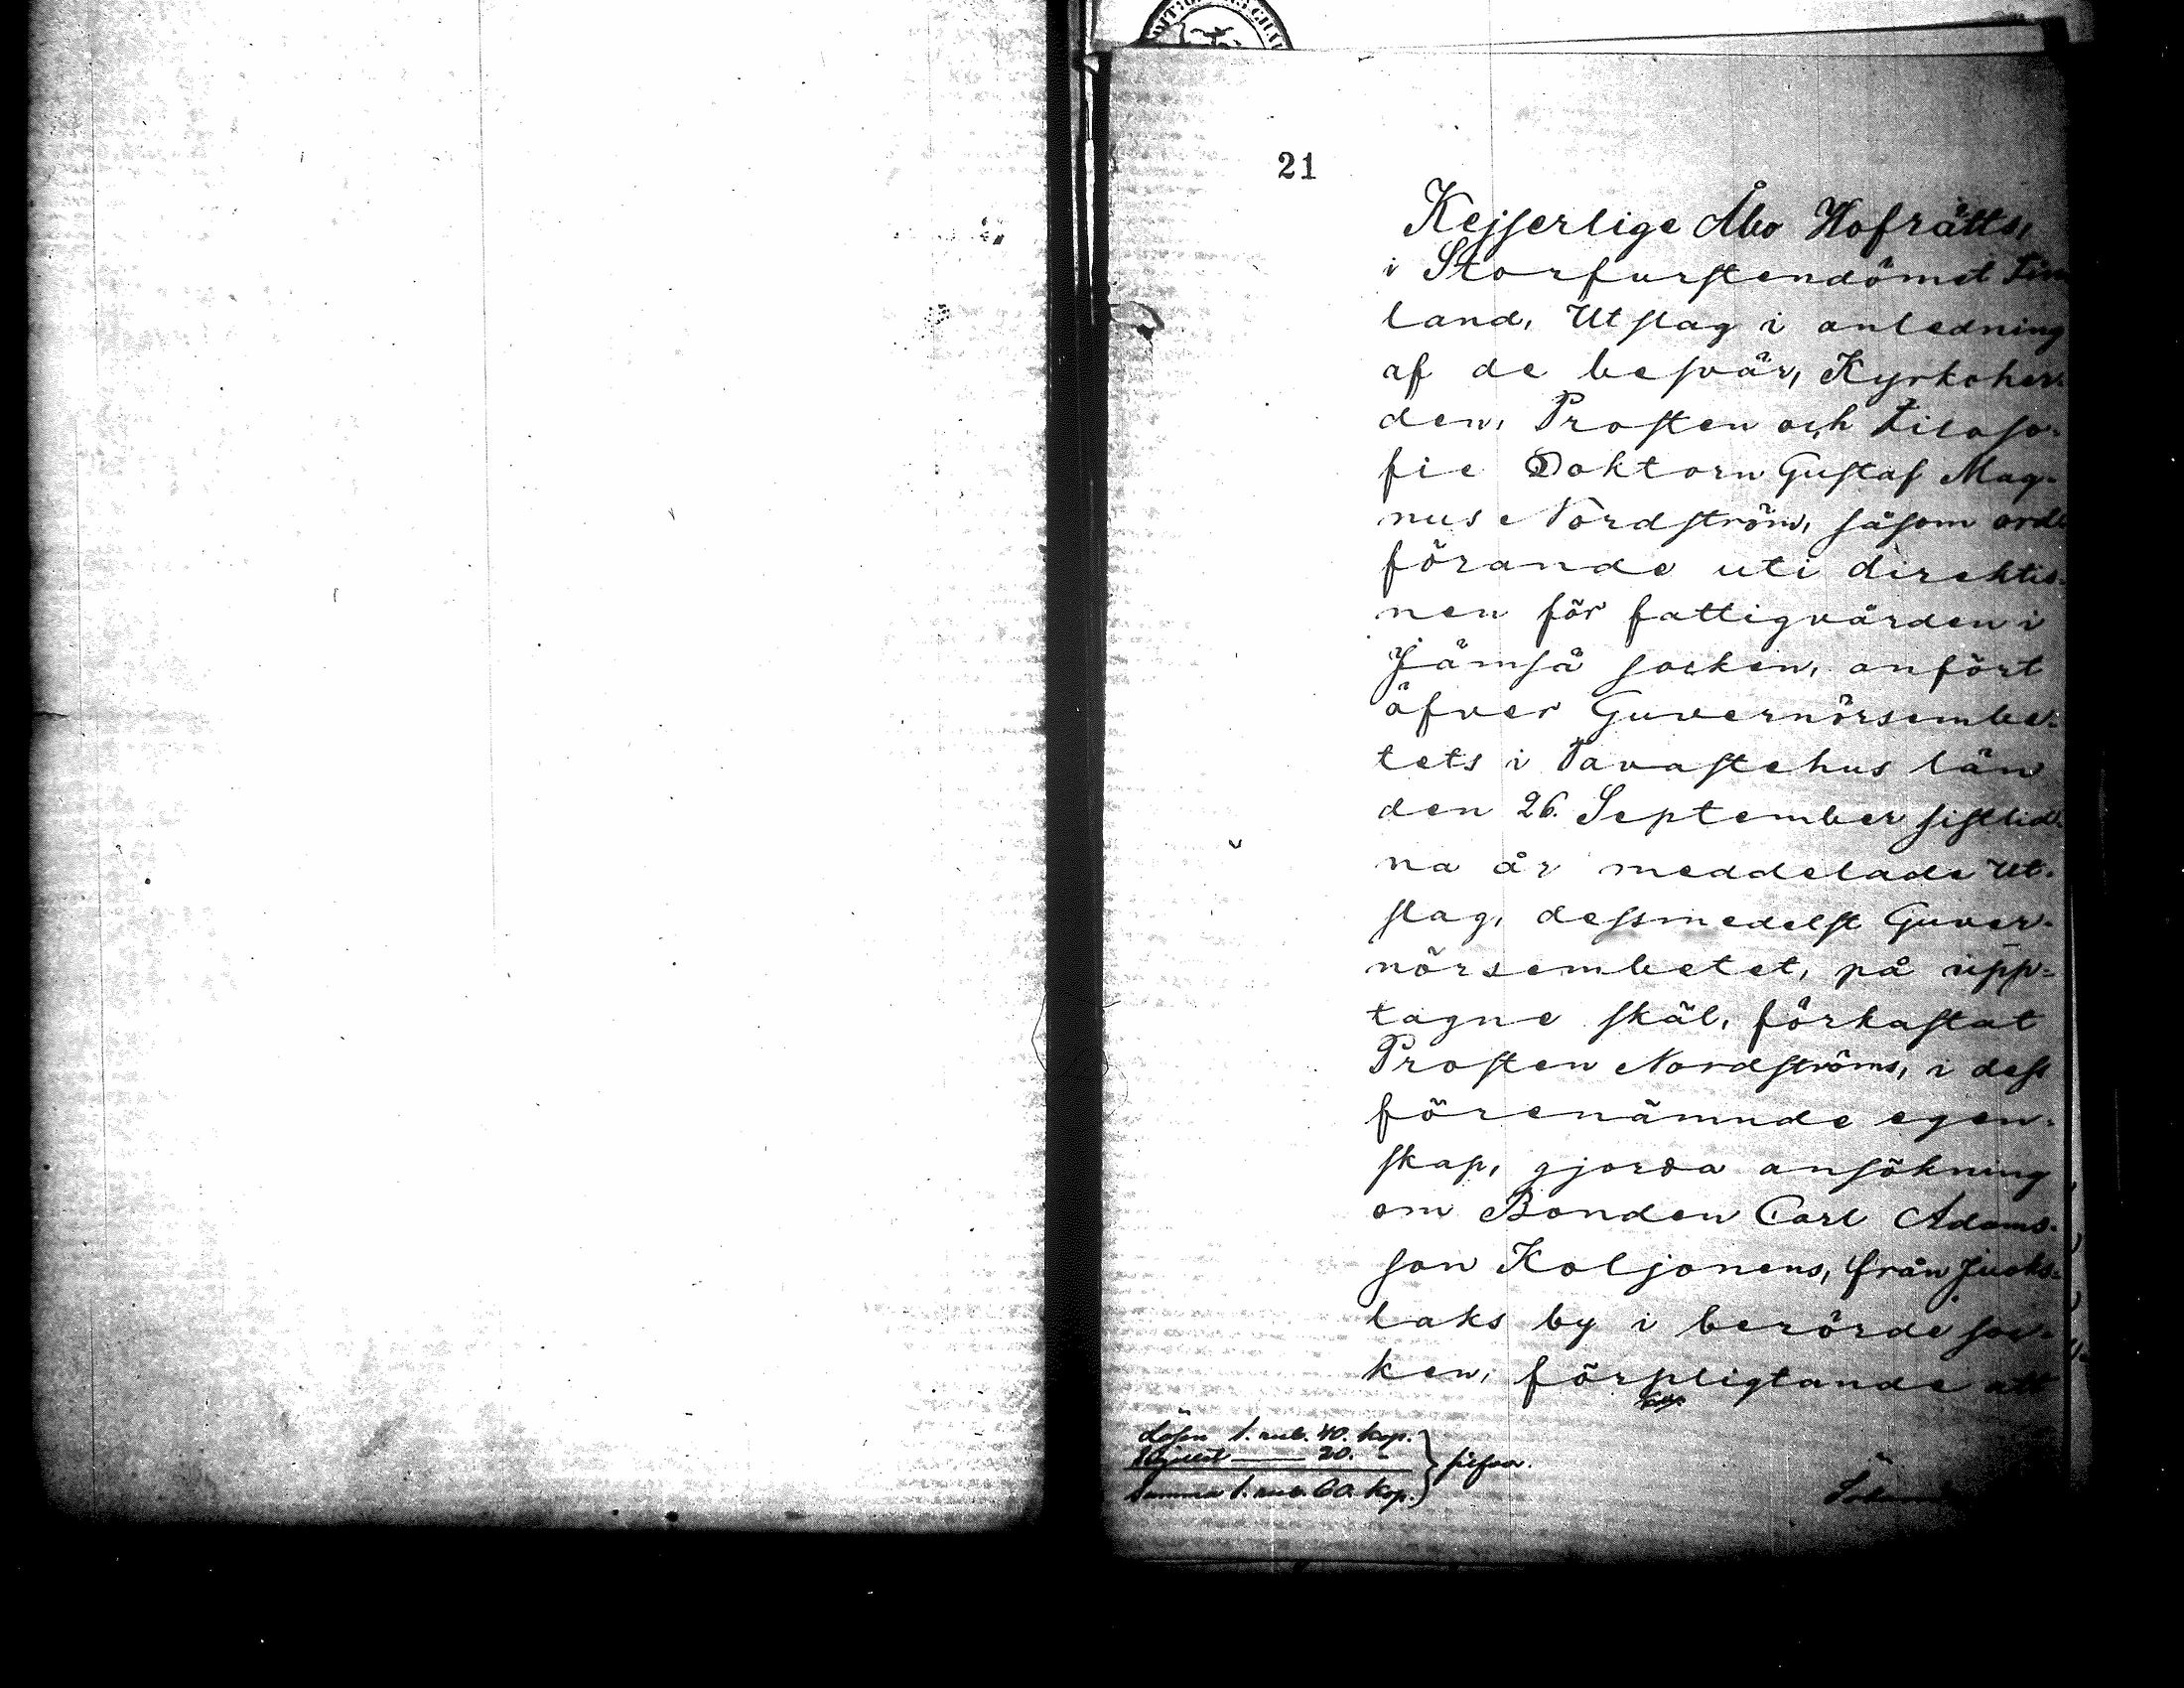 21
Kejserlige Åbo Hofrätts,
i Storfurstendömet Fin
land, Utslag i anledning
af de besvär, Kyrkoher-
den, Prosten och Filoso-
fie Doktorn Gustaf Mag-
nus Nordström, såsom ord-
förande uti direktio-
nen för fattigvården i
Jämsä socken, anfört
öfver Guvernörsembe-
tets i Tavastehus län
den 26. September sistlid-
na år meddelade Ut-
slag, dessmedelst Guver-
nörsembetet, på upp-
tagne skäl, förkastat
Prosten Nordströms, i dess
förenämnde egen-
skap, gjorda ansökning
om Bonden Carl Adams-
son Koljonens, från Juoks-
laks by i berörde soc-
ken, förpligtande att
Lösen 1. rub. 40. kop.
20. -
Summa 1. rub. 60. kop. silfver.